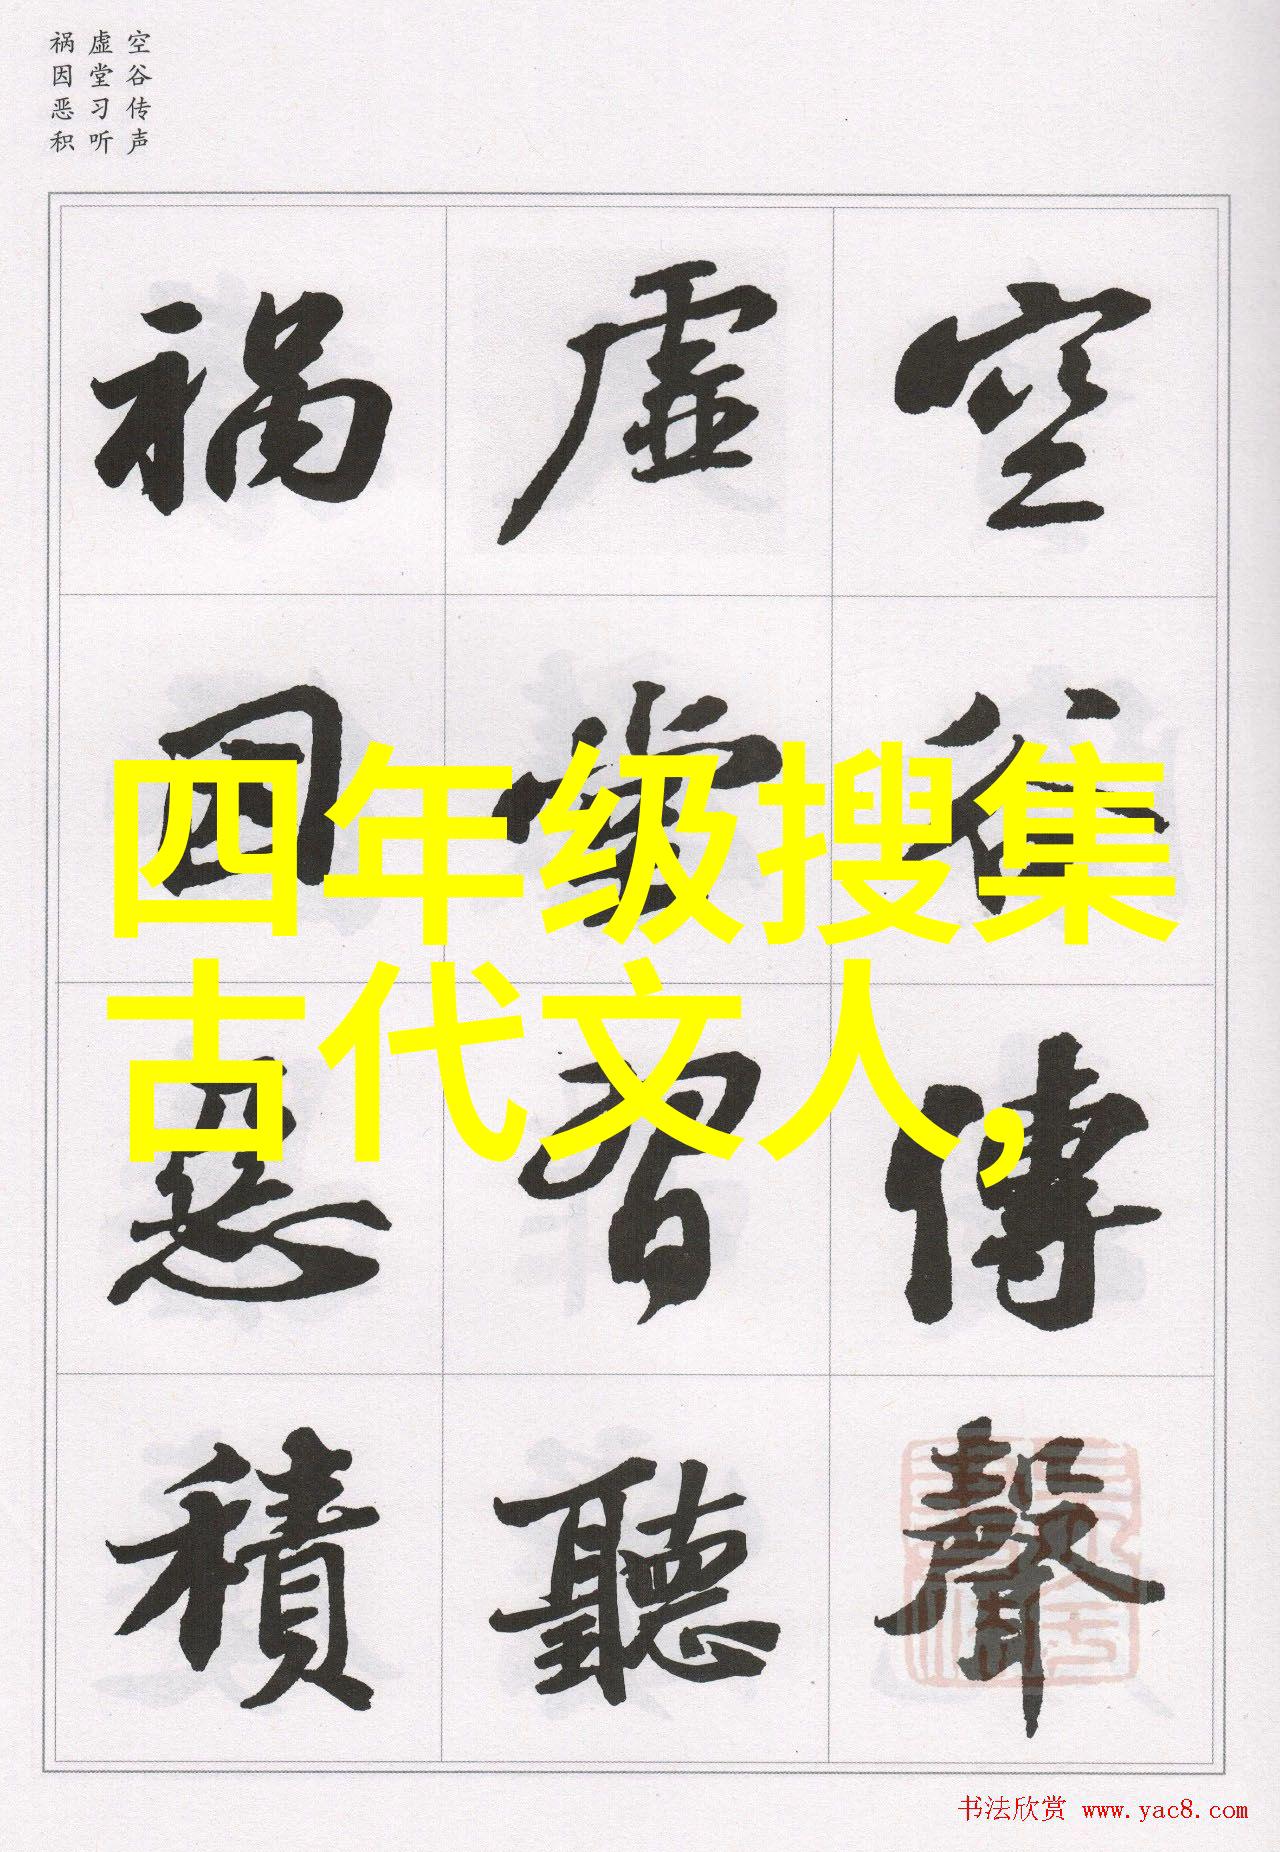 空谷传声
虚堂习听
祸因恶积
空谷傳聲
虚堂習聽
禍因惡積
四年级搜集
古代文人,
书法欣赏 www.yac8.com